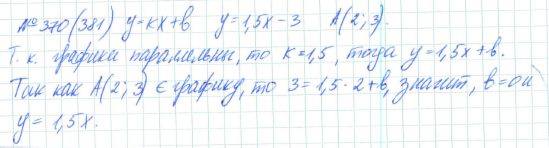 №370(381) y=kx+b y=1,5x-3 A(2;3).
Т. к. графики параллельны, то k=1,5, тогда y=1,5x+b.
Так как A(2;3) ∈ графику, то 3=1,5·2+b, значит, b=0 и
y=1,5x.